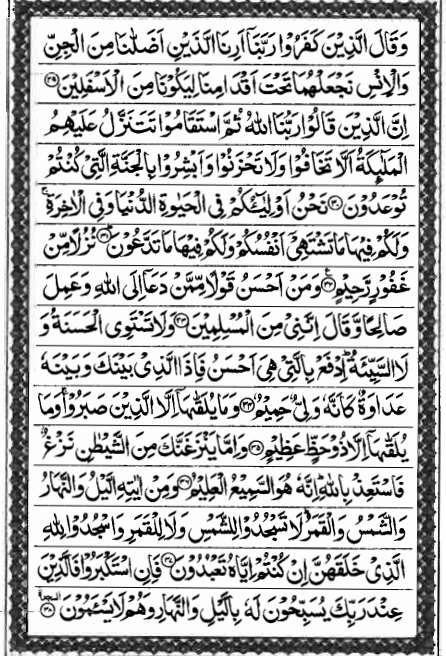 وَقَالَ الَّذِيْنَ كَفَرُوْا رَبَّنَآ اَرِنَا الَّذَيْنِ اَضَلّٰنَا مِنَ الْجِنِّ
وَالْاِنْسِ نَجْعَلْهُمَا تَحْتَ اَقْدَامِنَا لِيَكُوْنَا مِنَ الْاَسْفَلِيْنَ ﴿۲۹﴾
اِنَّ الَّذِيْنَ قَالُوْا رَبُّنَا اللّٰهُ ثُمَّ اسْتَقَامُوْا تَتَنَزَّلُ عَلَيْهِمُ
الْمَلٰٓئِكَةُ اَلَّا تَخَافُوْا وَلَا تَحْزَنُوْا وَاَبْشِرُوْا بِالْجَنَّةِ الَّتِيْ كُنْتُمْ
تُوْعَدُوْنَ ﴿۳۰﴾ نَحْنُ اَوْلِيٰٓؤُكُمْ فِى الْحَيٰوةِ الدُّنْيَا وَفِى الْاٰخِرَةِ ۚ
وَلَكُمْ فِيْهَا مَا تَشْتَهِيْٓ اَنْفُسُكُمْ وَلَكُمْ فِيْهَا مَا تَدَّعُوْنَ ﴿۳۱﴾ نُزُلًا مِّنْ
غَفُوْرٍ رَّحِيْمٍ ﴿۳۲﴾ وَمَنْ اَحْسَنُ قَوْلًا مِّمَّنْ دَعَآ اِلَى اللّٰهِ وَعَمِلَ
صَالِحًا وَّقَالَ اِنَّنِيْ مِنَ الْمُسْلِمِيْنَ ﴿۳۳﴾ وَلَا تَسْتَوِى الْحَسَنَةُ وَ
لَا السَّيِّئَةُ ۭ اِدْفَعْ بِالَّتِيْ هِىَ اَحْسَنُ فَاِذَا الَّذِيْ بَيْنَكَ وَبَيْنَهٗ
عَدَاوَةٌ كَاَنَّهٗ وَلِيٌّ حَمِيْمٌ ﴿۳۴﴾ وَمَا يُلَقّٰىهَآ اِلَّا الَّذِيْنَ صَبَرُوْا ۚ وَمَا
يُلَقّٰىهَآ اِلَّا ذُوْ حَظٍّ عَظِيْمٍ ﴿۳۵﴾ وَاِمَّا يَنْزَغَنَّكَ مِنَ الشَّيْطٰنِ نَزْغٌ
فَاسْتَعِذْ بِاللّٰهِ ۭ اِنَّهٗ هُوَ السَّمِيْعُ الْعَلِيْمُ ﴿۳۶﴾ وَمِنْ اٰيٰتِهِ الَّيْلُ وَالنَّهَارُ
وَالشَّمْسُ وَالْقَمَرُ ۭ لَا تَسْجُدُوْا لِلشَّمْسِ وَلَا لِلْقَمَرِ وَاسْجُدُوْا لِلّٰهِ
الَّذِيْ خَلَقَهُنَّ اِنْ كُنْتُمْ اِيَّاهُ تَعْبُدُوْنَ ﴿۳۷﴾ فَاِنِ اسْتَكْبَرُوْا فَالَّذِيْنَ
عِنْدَ رَبِّكَ يُسَبِّحُوْنَ لَهٗ بِالَّيْلِ وَالنَّهَارِ وَهُمْ لَا يَسْئَمُوْنَ ﴿۳۸﴾ السجدة